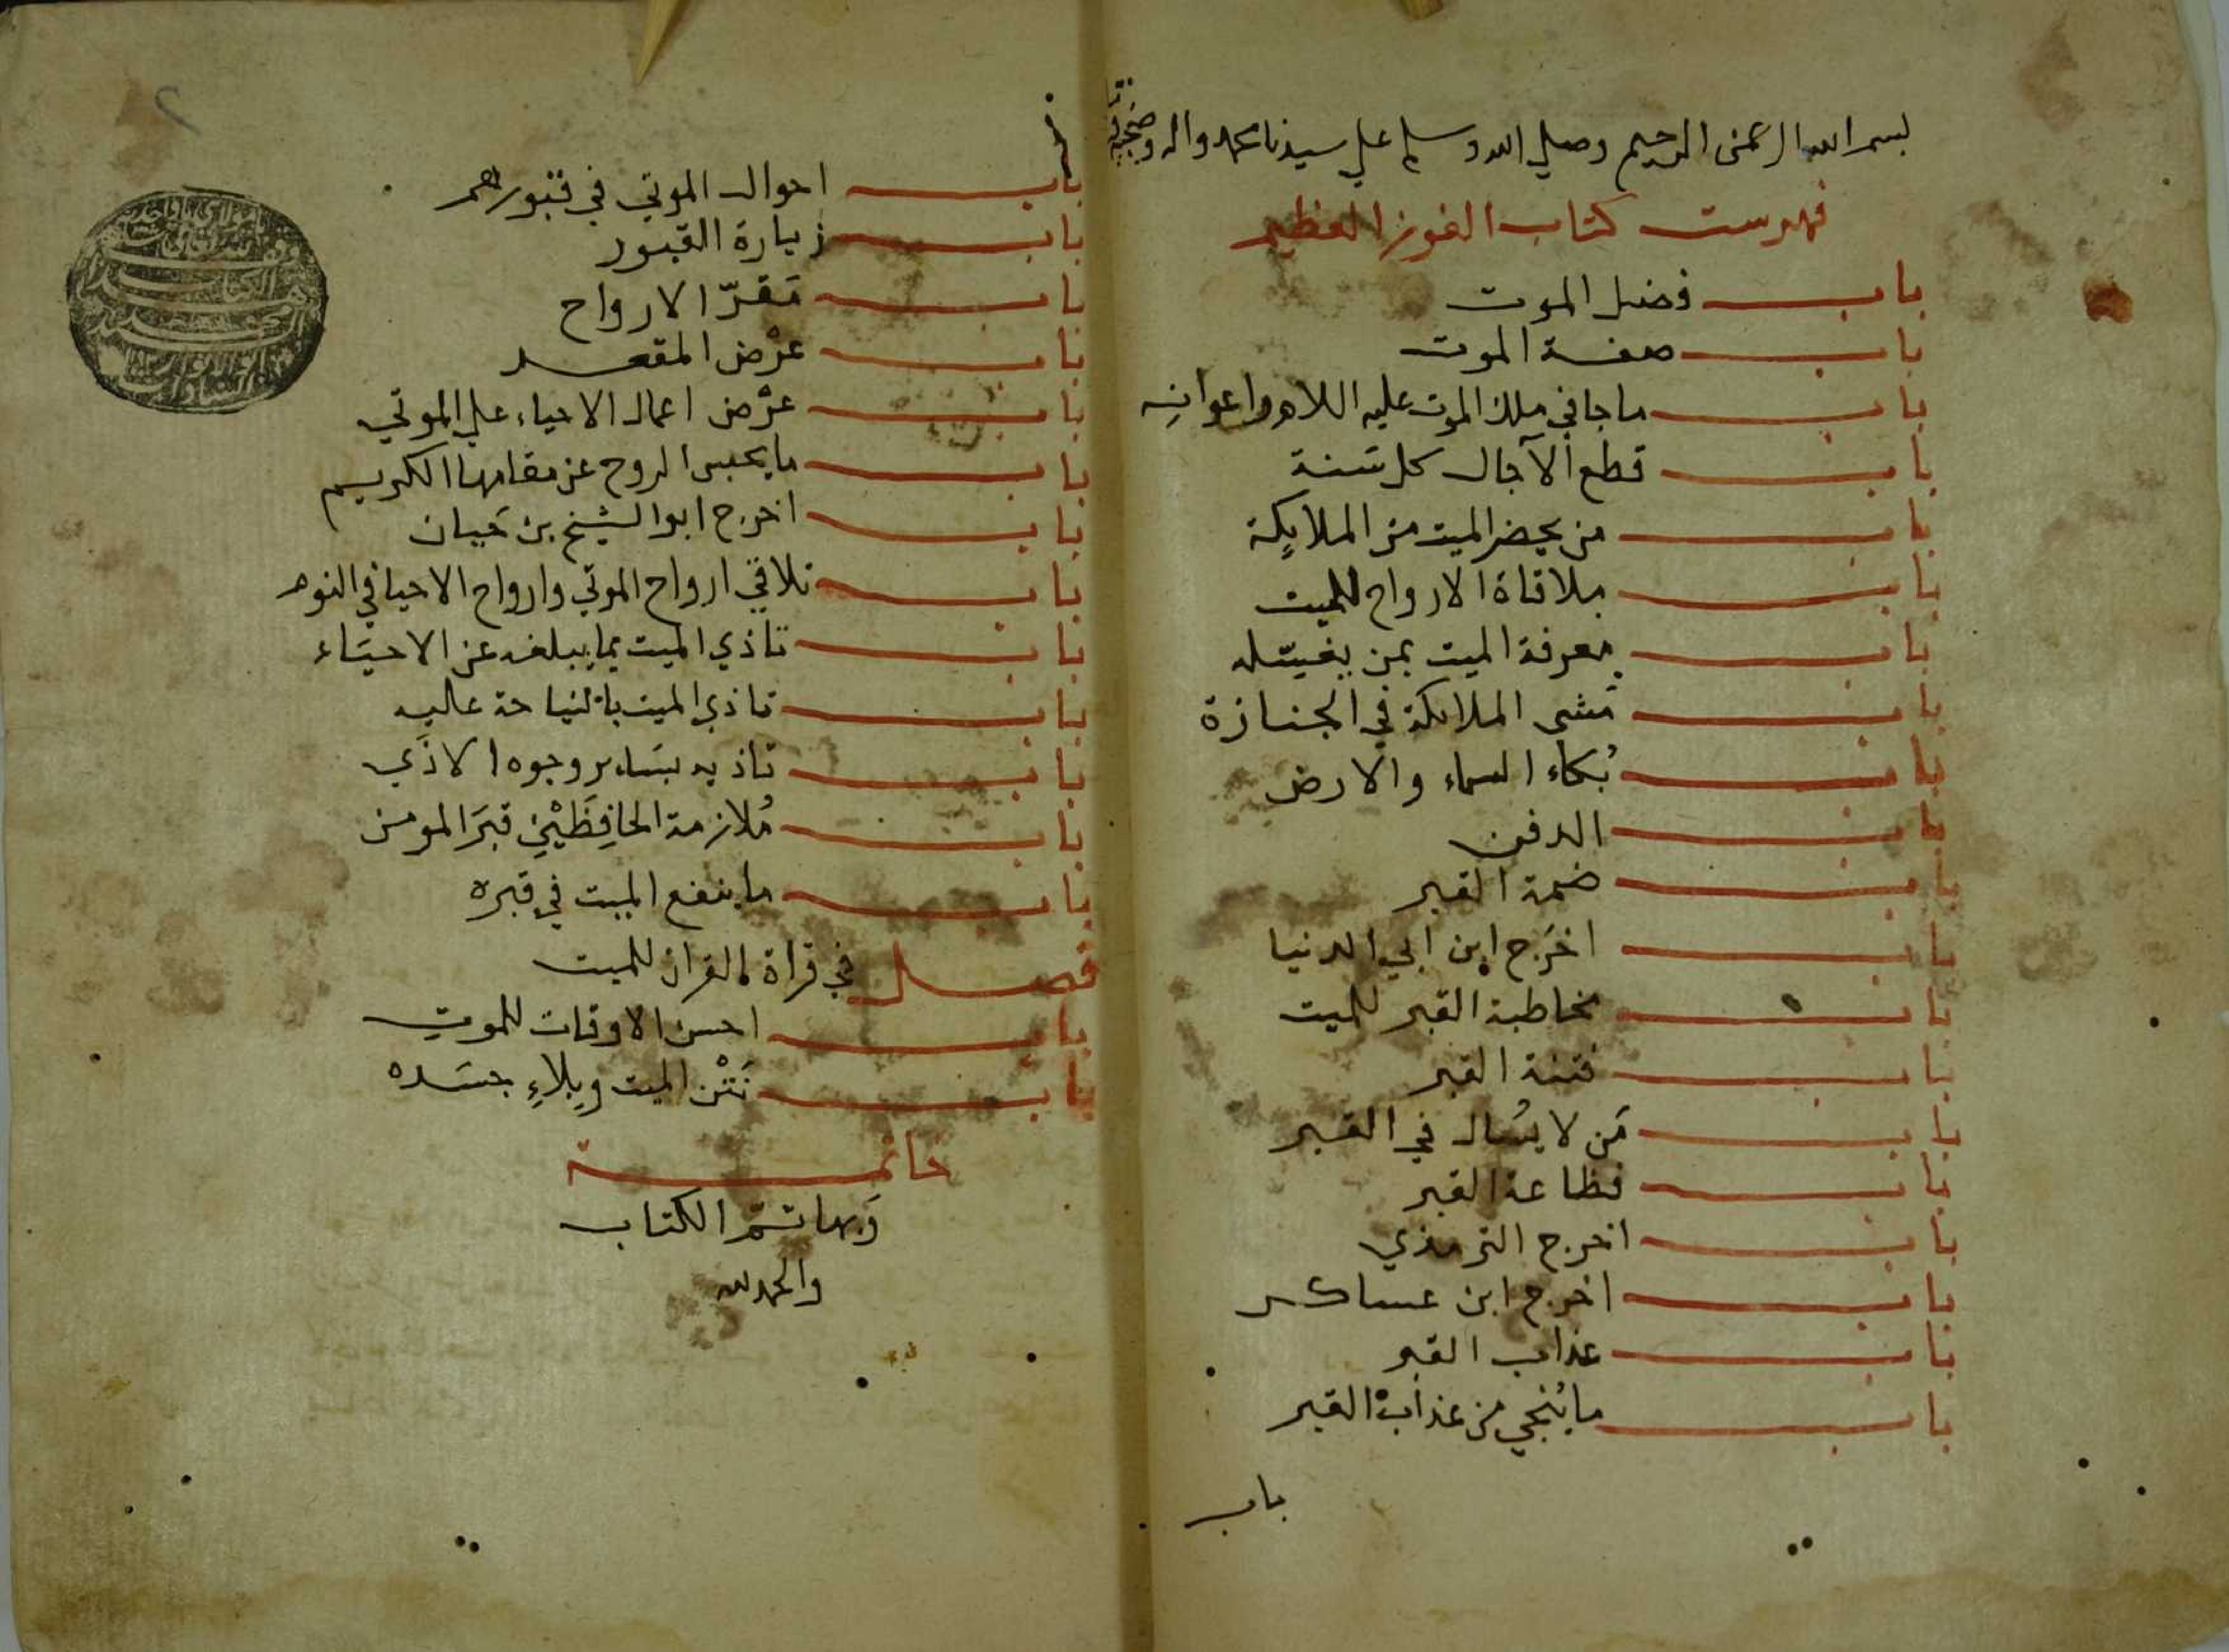 بسم الله الرحمن الرحيم وصلي الله وسلم علي سيدنا محمد واله وصحبه
فهرست كتاب الفوز العظيم
باب فضل الموت
باب صفة الموت
باب ما جا في ملك الموت عليه اللام واعوانه
باب قطع الآجال كل سنة
باب من يحضر الميت من الملايكة
باب ملاقاة الارواح للميت
باب معرفة الميت بمن يغسله
باب مشى الملائكة في الجنازة
باب بُكاء السماء والارض
باب الدفن
باب ضمة القبر
باب اخرَج ابن ابي الدنيا
باب مخاطبة القبر للميت
باب فتنة القبر
باب مَن لا يُسال في القبر
باب فظاعة القبر
باب اخرج الترمذي
باب اخرج ابن عساكر
باب عذاب القبر
باب ما يُنجي من عذاب القبر
باب
باب احوال الموتي في قبورهم
باب زيارة القبور
باب مَقرّ الارواح
باب عرْض المقعد
باب عرْض اعمال الاحياء علي الموتي
باب ما يحبس الروح عن مقامها الكريم
باب اخرج ابو الشيخ بن حَيان
باب تلاقي ارواح الموتي وارواح الاحيا في النوم
باب تاذي الميت بما يبلغه عن الاحيَاء
باب تاذي الميت بالنياحة عليه
باب تاذيه بسَاير وجوه الاذَي
باب مُلازمة الحافِظَيْنِ قبرَ المومن
باب ما ينفع الميت في قبره
فصل في قراة القران للميت
باب احسن الاوقات للموت
باب نَتْن الميت وبِلاءِ جسَده
خاتمة
وَبها تم الكتاب
والحمد لله